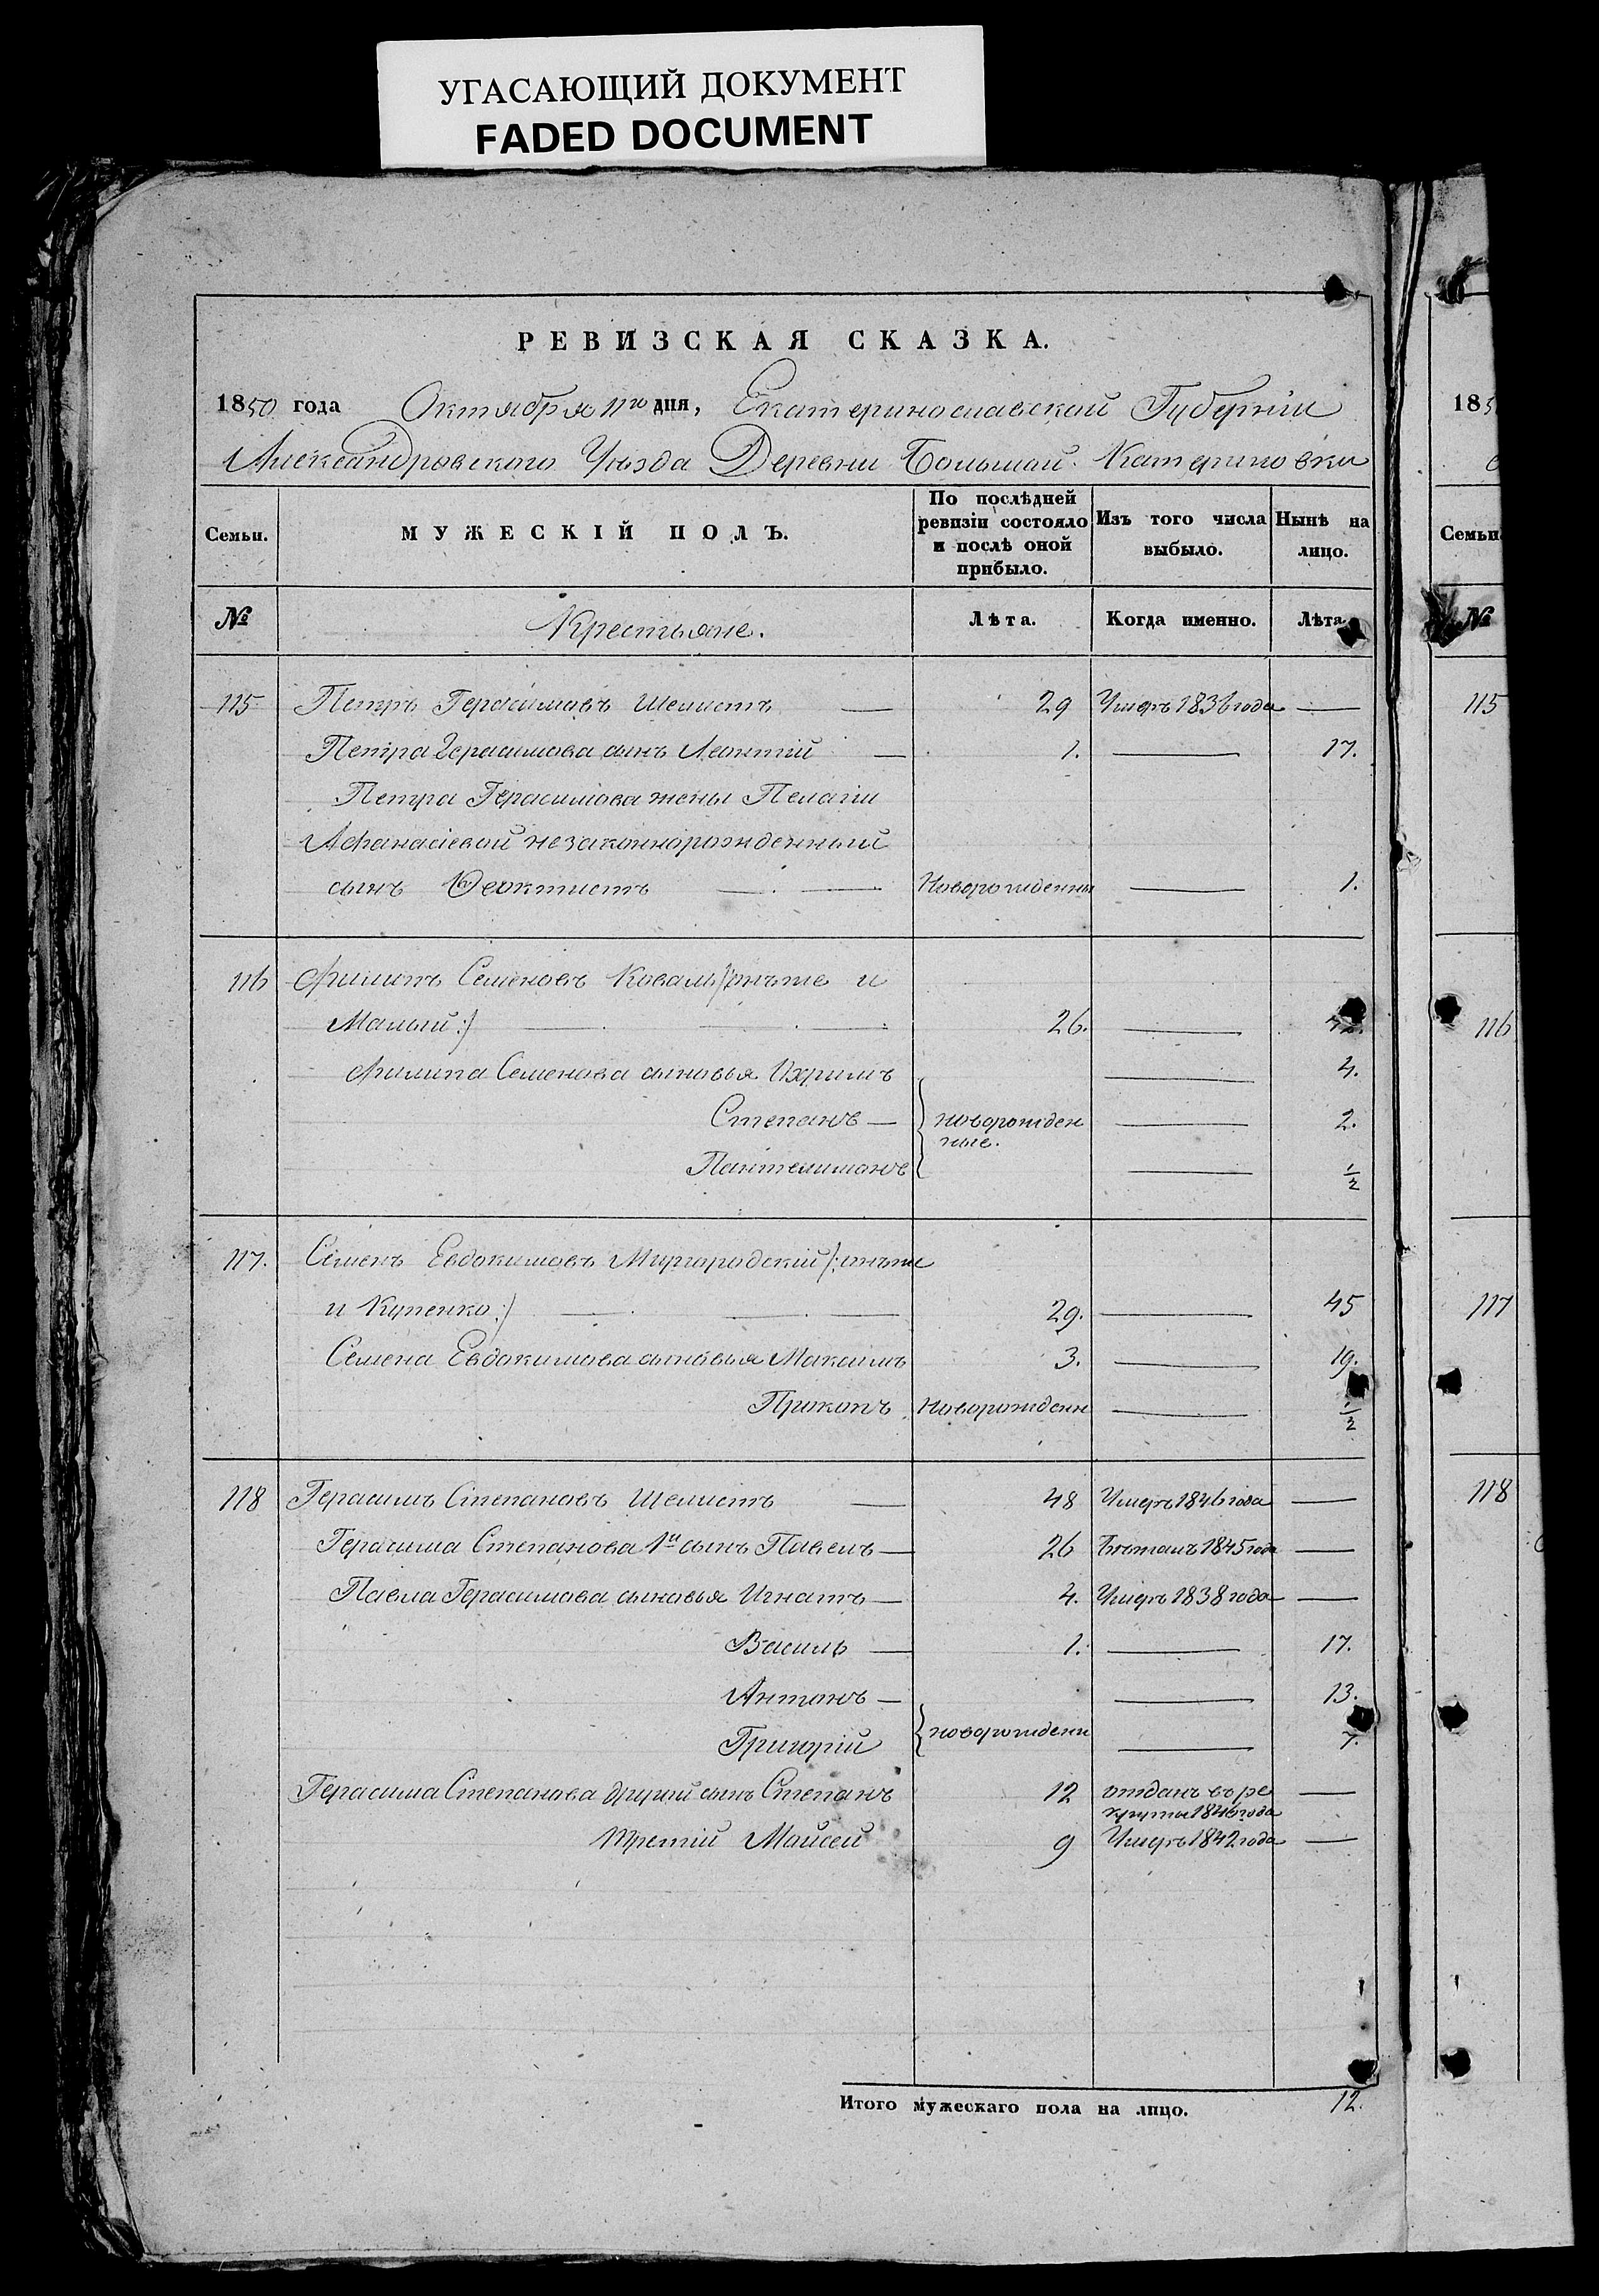 УГАСАЮЩИЙ ДОКУМЕНТ
FADED DOCUMENT
РЕВИЗСКАЯ СКАЗКА.
1850 года Октября 11го дня, Екатеринославской Губерніи
Александровского Уѣзда Деревни Большой Катериновки
Семьи. МУЖЕСКІЙ ПОЛЪ. По послѣдней ревизіи состояло и послѣ оной прибыло. Изъ того числа выбыло. Нынѣ на лицо.
№ Крестьяне. Лѣта. Когда именно. Лѣта
115 Петръ Герасимовъ Шелистъ — 29 Умеръ 1836 года —
Петра Герасимова сынъ Леонтій — 1. — 17.
Петра Герасимова жены Пелагіи
Афанасіевой незаконнорожденный
сынъ Феоктистъ — Новорожденны — 1.
116 Филипъ Семеновъ Коваль /: онъ же и
Малый :/ — 26. —
Филипа Семенова сыновья Ихримъ — 4.
Степанъ — новорожден — 2.
ные.
Пантелимонъ — ½
117. Семенъ Евдокимовъ Миргородскій /: онъ же
и Купенко :/ — 29. — 45
Семена Евдокимова сыновья Максимъ 3. — 19.
Прокопъ Новорожденн — ½
118 Герасимъ Степановъ Шелистъ — 48 Умеръ 1846 года —
Герасима Степанова 1й сынъ Павелъ — 26 Бѣжалъ 1845 года —
Павла Герасимова сыновья Игнатъ — 4. Умеръ 1838 года —
Василь — 1. — 17.
Антонъ — — 13.
Григорій новорожденн — 7.
Герасима Степанова другій сынъ Степанъ 12 отданъ въ ре —
круты 1846 года
Третій Мойсей 9 Умеръ 1842 года —
Итого мужескаго пола на лицо. 12.
185
Семьи
№
115
116
117
118